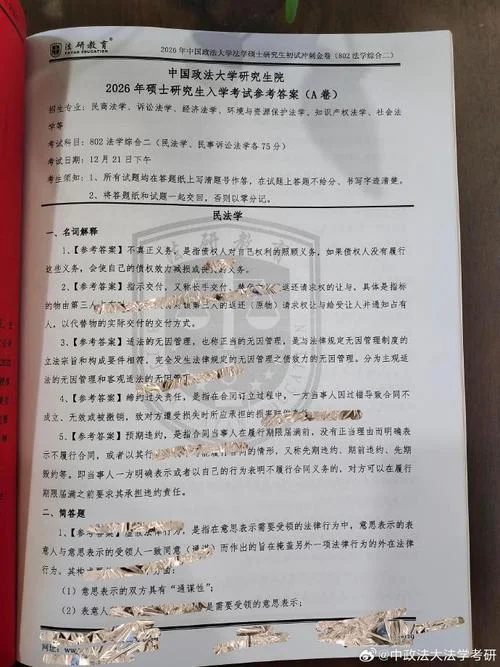 法研教育
FAYAN EDUCATION
2026年中国政法大学法学硕士研究生初试冲刺金卷（802法学综合二）
中国政法大学研究生院
2026年硕士研究生入学考试参考答案（A卷）
招生专业：民商法学、诉讼法学、经济法学、环境与资源保护法学、知识产权法学、社会法
学等
考试科目：802法学综合二（民法学、民事诉讼法学各75分）
考试日期：12月21日下午
考生须知：1、所有试题均在答题纸上写清题号作答，在试题上答题不给分、书写字迹清楚。
2、将答题纸和试题一起交回，否则以零分记。
民法学
一、名词解释
1、【参考答案】不真正义务，是指债权人对自己权利的照顾义务，如果债权人没有履行
这些义务，会使自己的债权效力减损或丧失的义务。
2、【参考答案】指示交付，又称长手交付、返还请求权的让与。具体是指标
的物由第三人该第三人的返还（原物）请求权让与给受让人并通知占有
人，以代替物的实际交付的交付方式。
3、【参考答案】适法的无因管理，也称正当的无因管理，是与法律规定无因管理制度的
立法宗旨和构成要件相符，完全发生法律规定的无因管理之债效力的无因管理。分为主观适
法的无因管理和客观适法的无因管理
4、【参考答案】缔约过失责任，是指在合同订立过程中，一方当事人因过错导致合同不
成立、无效或被撤销，致对方遭受损失时所应承担的损害赔偿责任
5、【参考答案】预期违约，是指合同当事人在履行期限届满前，没有正当理由而明确表
示不履行合同，或者以其行能履行合同的情形，又称先期违约、期前违约、先期
毁约等。即当事人一方明确表示或者以自己的行为表明不履行合同义务的，对方可以在履行
期限届满之前要求其承担违约责任。
二、简答题
1、【参考答案】虚假法律行为，是指在意思表示需要受领的法律行为中，意思表示的表
意人与意思表示的受领人一致同意（通谋）而作出的旨在掩盖另外一项法律行为的外在法律
行为。其构成要件为以下方面：
（1）意思表示的双方具有“通谋性”；
（2）表意人是需要受领的意思表示；
网址：www.
@中政法大法学考研